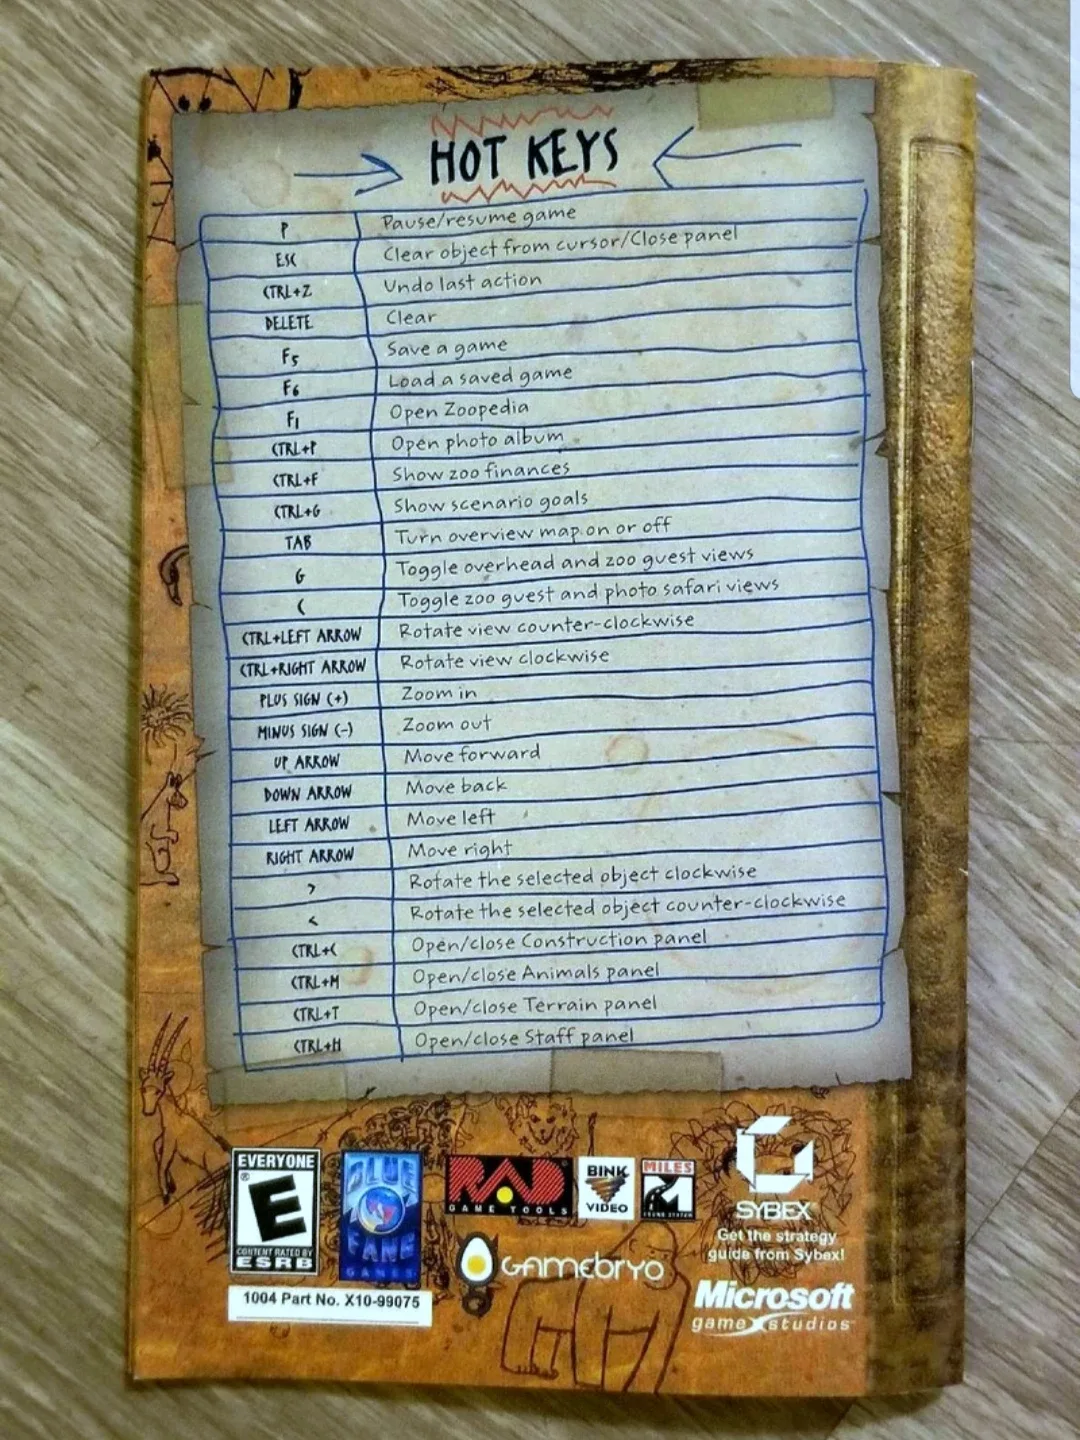 HOT KEYS
P Pause/resume game
ESC Clear object from cursor/Close panel
CTRL+Z Undo last action
DELETE Clear
F5 Save a game
F6 Load a saved game
F1 Open Zoopedia
CTRL+P Open photo album
CTRL+F Show zoo finances
CTRL+G Show scenario goals
TAB Turn overview map on or off
G Toggle overhead and zoo guest views
C Toggle zoo guest and photo safari views
CTRL+LEFT ARROW Rotate view counter-clockwise
CTRL+RIGHT ARROW Rotate view clockwise
PLUS SIGN (+) Zoom in
MINUS SIGN (-) Zoom out
UP ARROW Move forward
DOWN ARROW Move back
LEFT ARROW Move left
RIGHT ARROW Move right
> Rotate the selected object clockwise
< Rotate the selected object counter-clockwise
CTRL+C Open/close Construction panel
CTRL+M Open/close Animals panel
CTRL+T Open/close Terrain panel
CTRL+H Open/close Staff panel
EVERYONE
E
®
CONTENT RATED BY
ESRB
BLUE
FANG
GAMES
RAD
GAME TOOLS
BINK
VIDEO
MILES
SOUND SYSTEM
SYBEX
Get the strategy
guide from Sybex!
GAMEbryo
1004 Part No. X10-99075
Microsoft
game studios